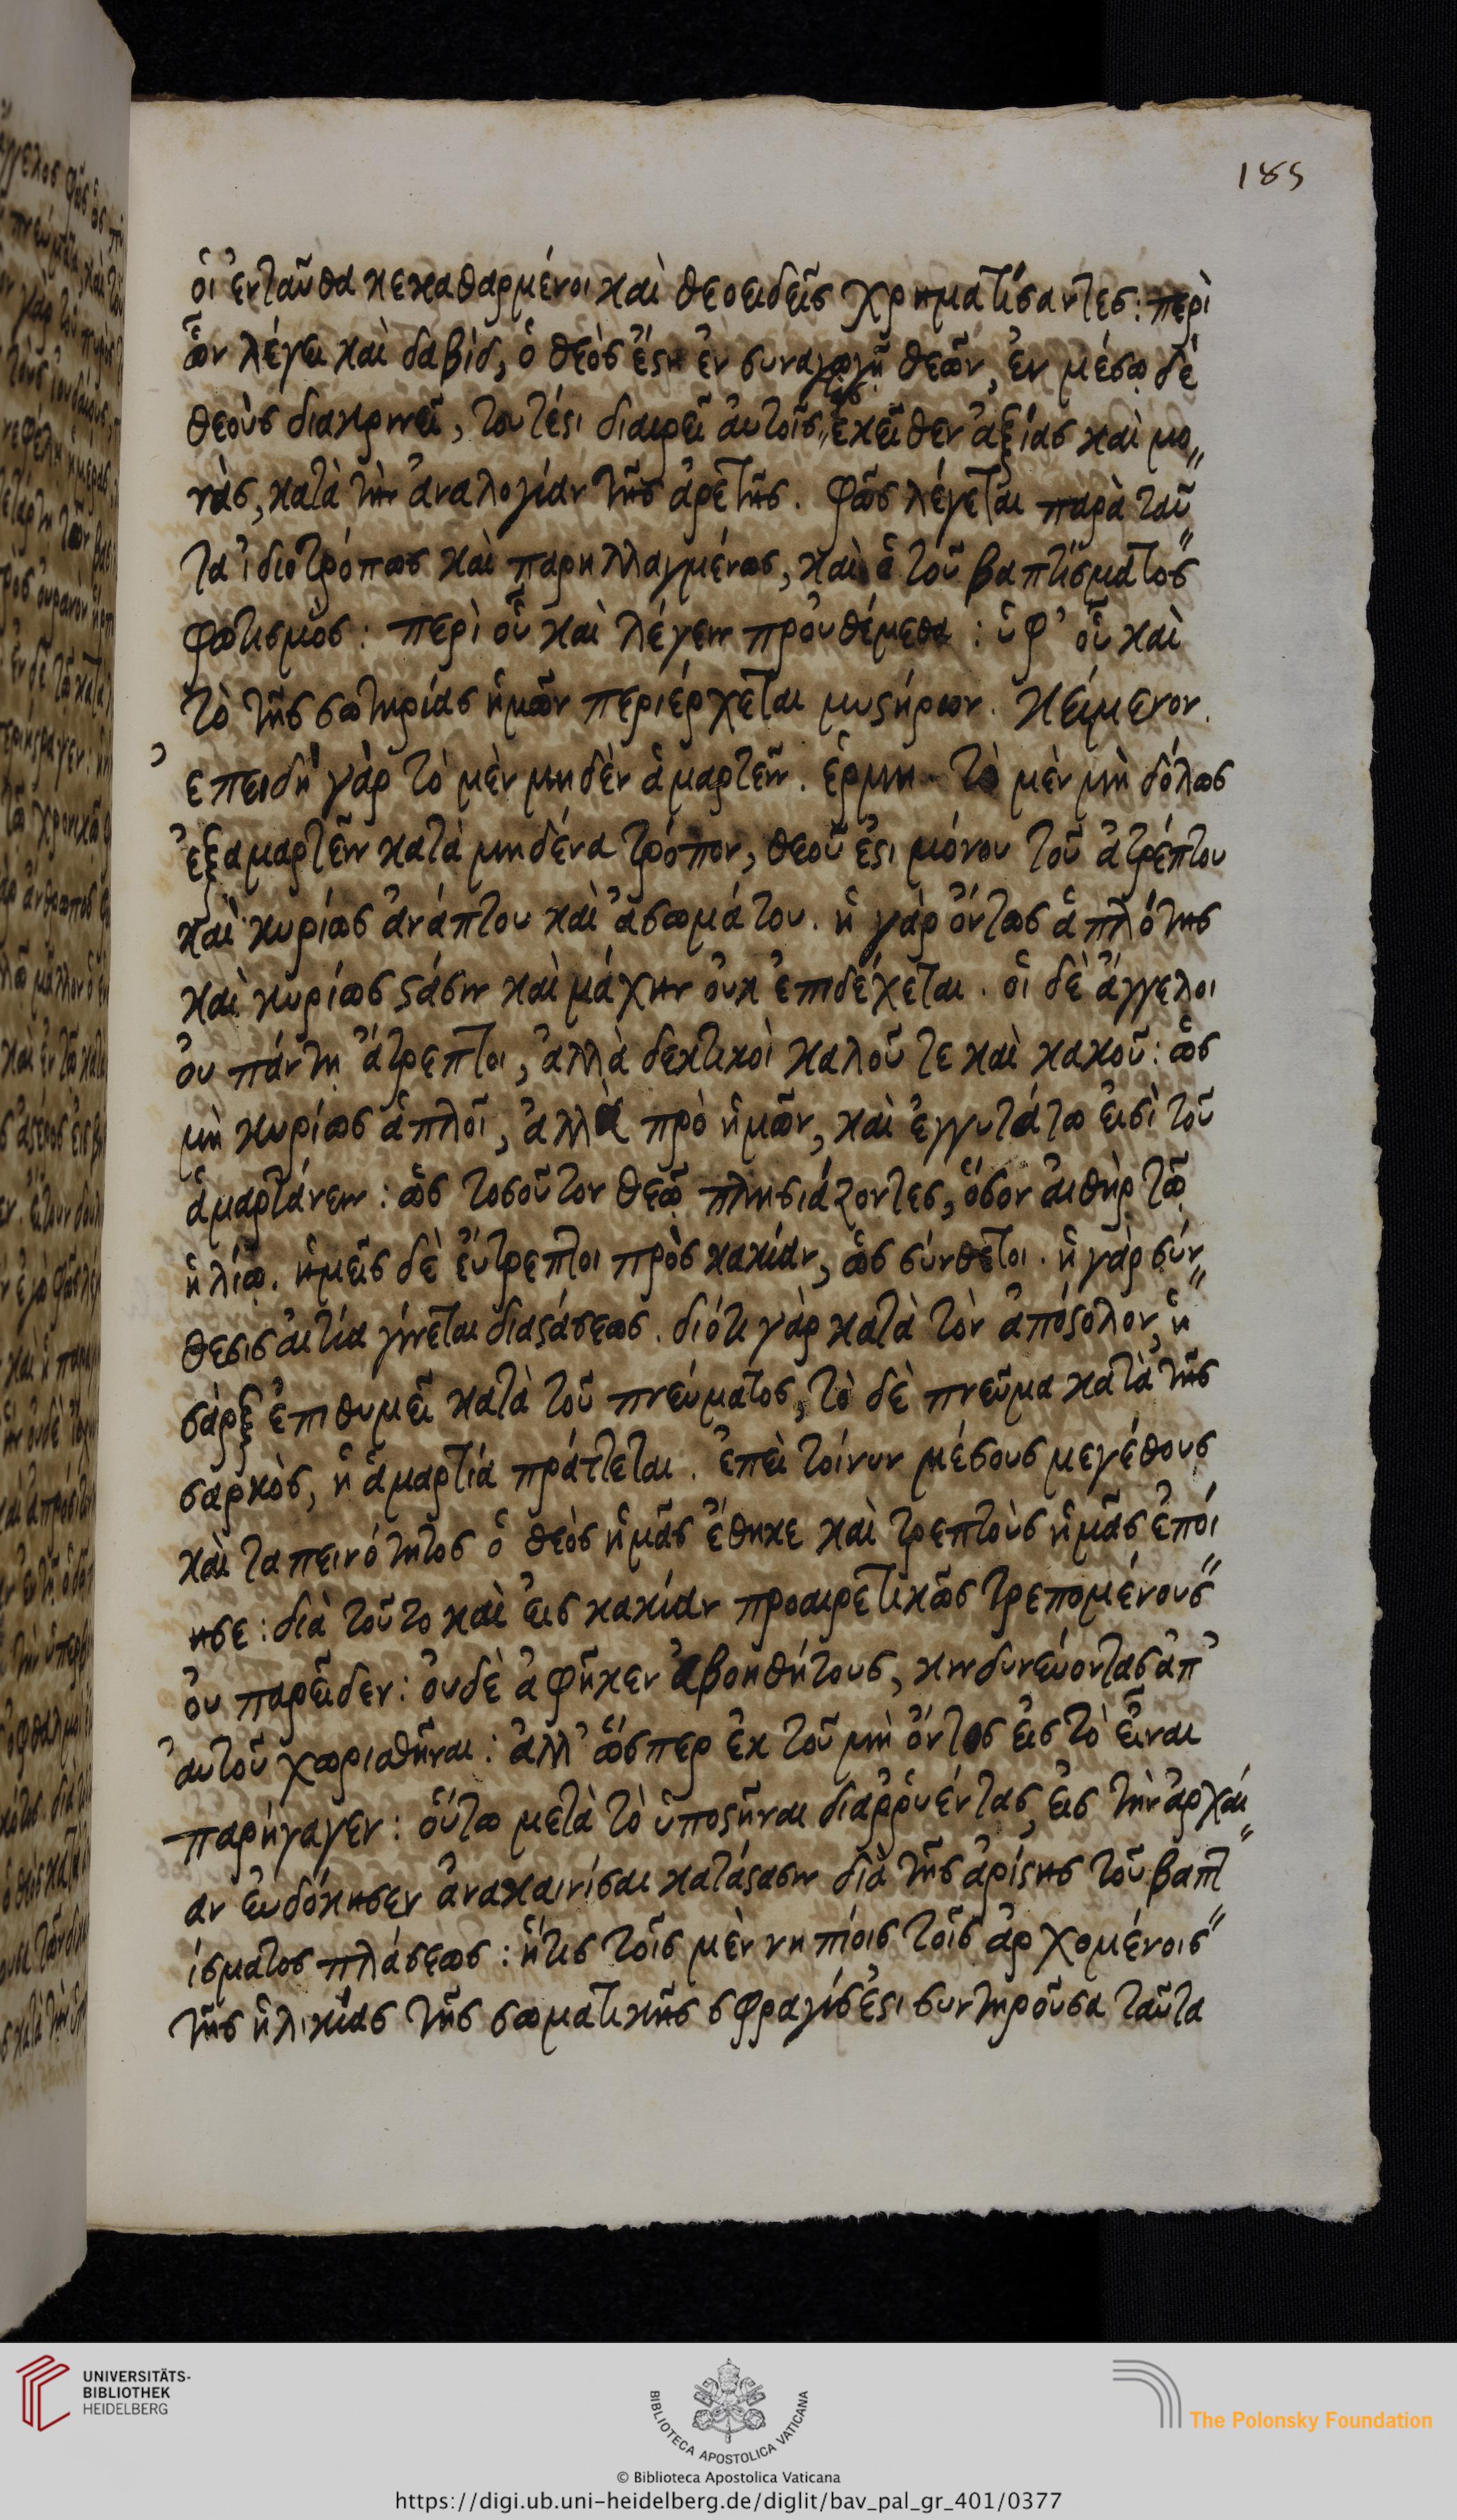 185
ὁι ἐνταῦθα κεκαθαρμένοι καὶ θεοειδεῖς χρηματίσαντες: περὶ
ὧν λέγει καὶ δαβίδ, ὁ θεὸς ἔστη ἐν συναγωγῆ θεῶν, ἐν μέσω δὲ
θεοὺς διακρινεῖ, τουτέστι διαιρεῖ ἀυτοῖς τὰς ἐκεῖθεν ἀξίας καὶ μο〃
νὰς, κατὰ τὴν ἀναλογίαν τῆς ἀρετῆς. φῶς λέγεται παρὰ ταῦ〃
τα ἰδιοτρόπως καὶ παρηλλαγμένως, καὶ ὁ τοῦ βαπτίσματος
φωτισμὸς: περὶ οὗ καὶ λέγειν προυθέμεθα: ὑφ' οὗ καὶ
τὸ τῆς σωτηρίας ἡμῶν περιέρχεται μυστήριον. Κείμενον.
ἐπειδὴ γὰρ τὸ μὲν μηδὲν ἁμαρτεῖν. ἑρμη- τὸ μὲν μὴ δόλως
ἐξαμαρτεῖν κατὰ μηδένα τρόπον, θεοῦ ἐστι μόνου τοῦ ἀτρέπτου
καὶ κυρίως ἀνάπτου καὶ ἀσωμάτου. ἡ γὰρ ὄντως ἁπλότης
καὶ κυρίως στάσιν καὶ μάχην ὀυκ ἐπιδέχεται. ὁι δὲ ἄγγελοι
ὀυ πάντη ἄτρεπτοι, ἀλλὰ δεκτικοὶ καλοῦ τε καὶ κακοῦ: ὡς
μὴ κυρίως ἁπλοῖ, ἀλλὰ πρὸ ἡμῶν, καὶ ἐγγυτάτω ἐισὶ τοῦ
ἁμαρτάνειν: ὡς τοσοῦτον θεῶ πλησιάζοντες, ὅσον ἀιθὴρ τῶ
ἡλίω. ἡμεῖς δὲ ἔυτρεπτοι πρὸς κακίαν, ὡς σύνθετοι. ἡ γὰρ σύν〃
θεσις ἀιτία γίνεται διαστάσεως. διότι γὰρ κατὰ τὸν ἀπόστολον, ἡ
σὰρξ ἐπιθυμεῖ κατὰ τοῦ πνεύματος, τὸ δὲ πνεῦμα κατὰ τῆς
σαρκὸς, ἡ ἁμαρτία πράττεται. ἐπεὶ τοίνυν μέσους μεγέθους
καὶ ταπεινότητος ὁ θεὸς ἡμᾶς ἔθηκε καὶ τρεπτοὺς ἡμᾶς ἐποί〃
ησε: διὰ τοῦτο καὶ ἐις κακίαν προαιρετικῶς τρεπομένους
ὀυ παρεῖδεν: ὀυδὲ ἀφῆκεν ἀβοηθήτους, κινδυνεύοντας ἀπ'
ἀυτοῦ χωρισθῆναι: ἀλλ' ὥσπερ ἐκ τοῦ μὴ ὄντος ἐις τὸ εἶναι
παρήγαγεν: ὅυτω μετὰ τὸ ὑποστῆναι διαῤῥυέντας, ἐις τὴν ἀρχαί〃
αν ἐυδόκησεν ἀνακαινίσαι κατάστασιν διὰ τῆς ἀρίστης τοῦ βαπτ〃
ίσματος πλάσεως: ἥτις τοῖς μὲν νηπίοις τοῖς ἀρχομένοις
τῆς ἡλικίας τῆς σωματικῆς σφραγίς ἐστι συντηροῦσα ταῦτα
UNIVERSITÄTS-
BIBLIOTHEK
HEIDELBERG
BIBLIOTECA APOSTOLICA VATICANA
The Polonsky Foundation
© Biblioteca Apostolica Vaticana
https://digi.ub.uni-heidelberg.de/diglit/bav_pal_gr_401/0377